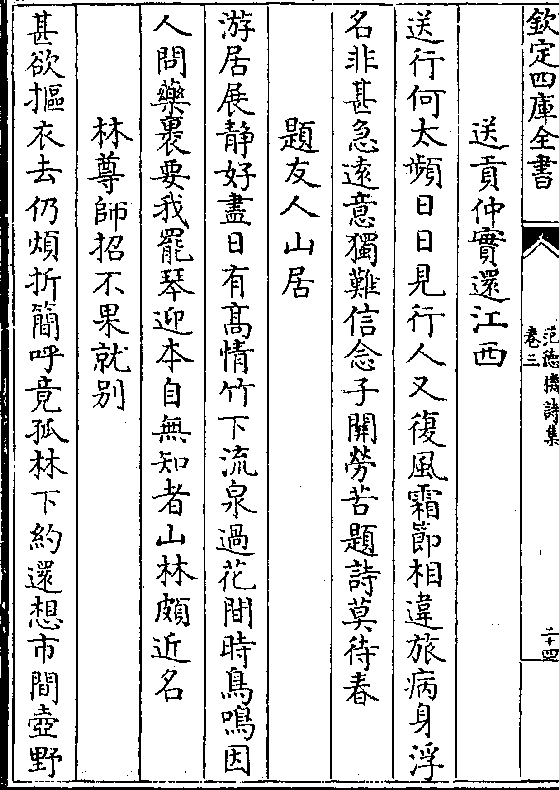 欽定四庫全書
范德機詩集
卷三
二十四
送貢仲實還江西
送行何太頻日日見行人又復風霜節相違旅病身浮
名非甚急遠意獨難信念子關勞苦題詩莫待春
題友人山居
游居展静好盡日有高情竹下流泉過花間時鳥鳴因
人問藥裹要我罷琴迎本自無知者山林頗近名
林尊師招不果就别
甚欲摳衣去仍煩折簡呼竟孤林下約還想市間壺野